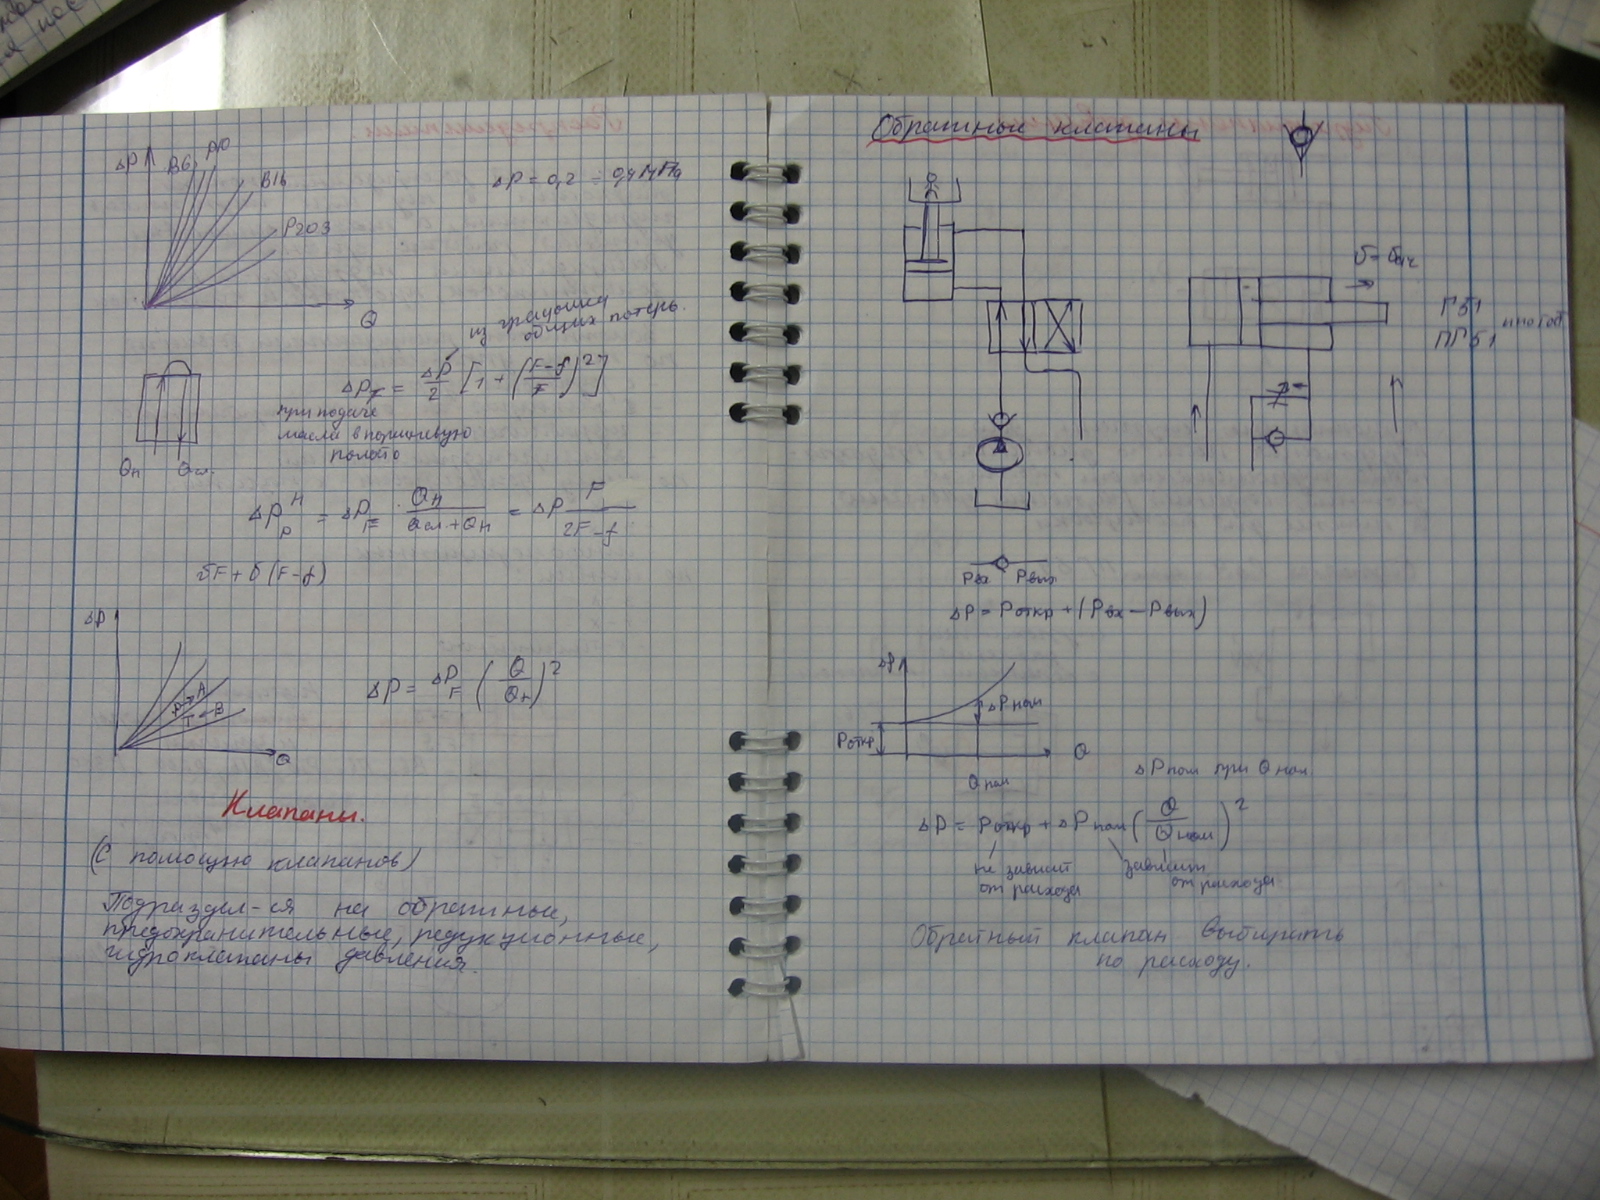 ΔP
В6
В16
Р203
Q
ΔP = 0,2 ÷ 0,4 МПа
из графика
общих потерь.
ΔP_F = ΔP/2 [1 + ((F-f)/F)²]
при подаче
масла в поршневую
полость
Qн Qсл.
ΔP_P^H = ΔP_F · Qн/(Qсл.+Qн) = ΔP F/(2F-f)
υF + υ(F-f)
ΔP
P→A
T←B
Q
ΔP = ΔP_F (Q/Qн)²
Клапаны.
(С помощью клапанов)
Подраздел-ся на обратные,
предохранительные, редукционные,
гидроклапаны давления.
Обратные клапаны
Г51
ПГ51
Pвх Pвых
ΔP = Pоткр + (Pвх - Pвых)
ΔP
ΔPном
Pоткр
Q
Qном
ΔPном при Qном
ΔP = Pоткр + ΔPном (Q/Qном)²
не зависит зависит
от расхода от расхода
Обратный клапан выбирать
по расходу.